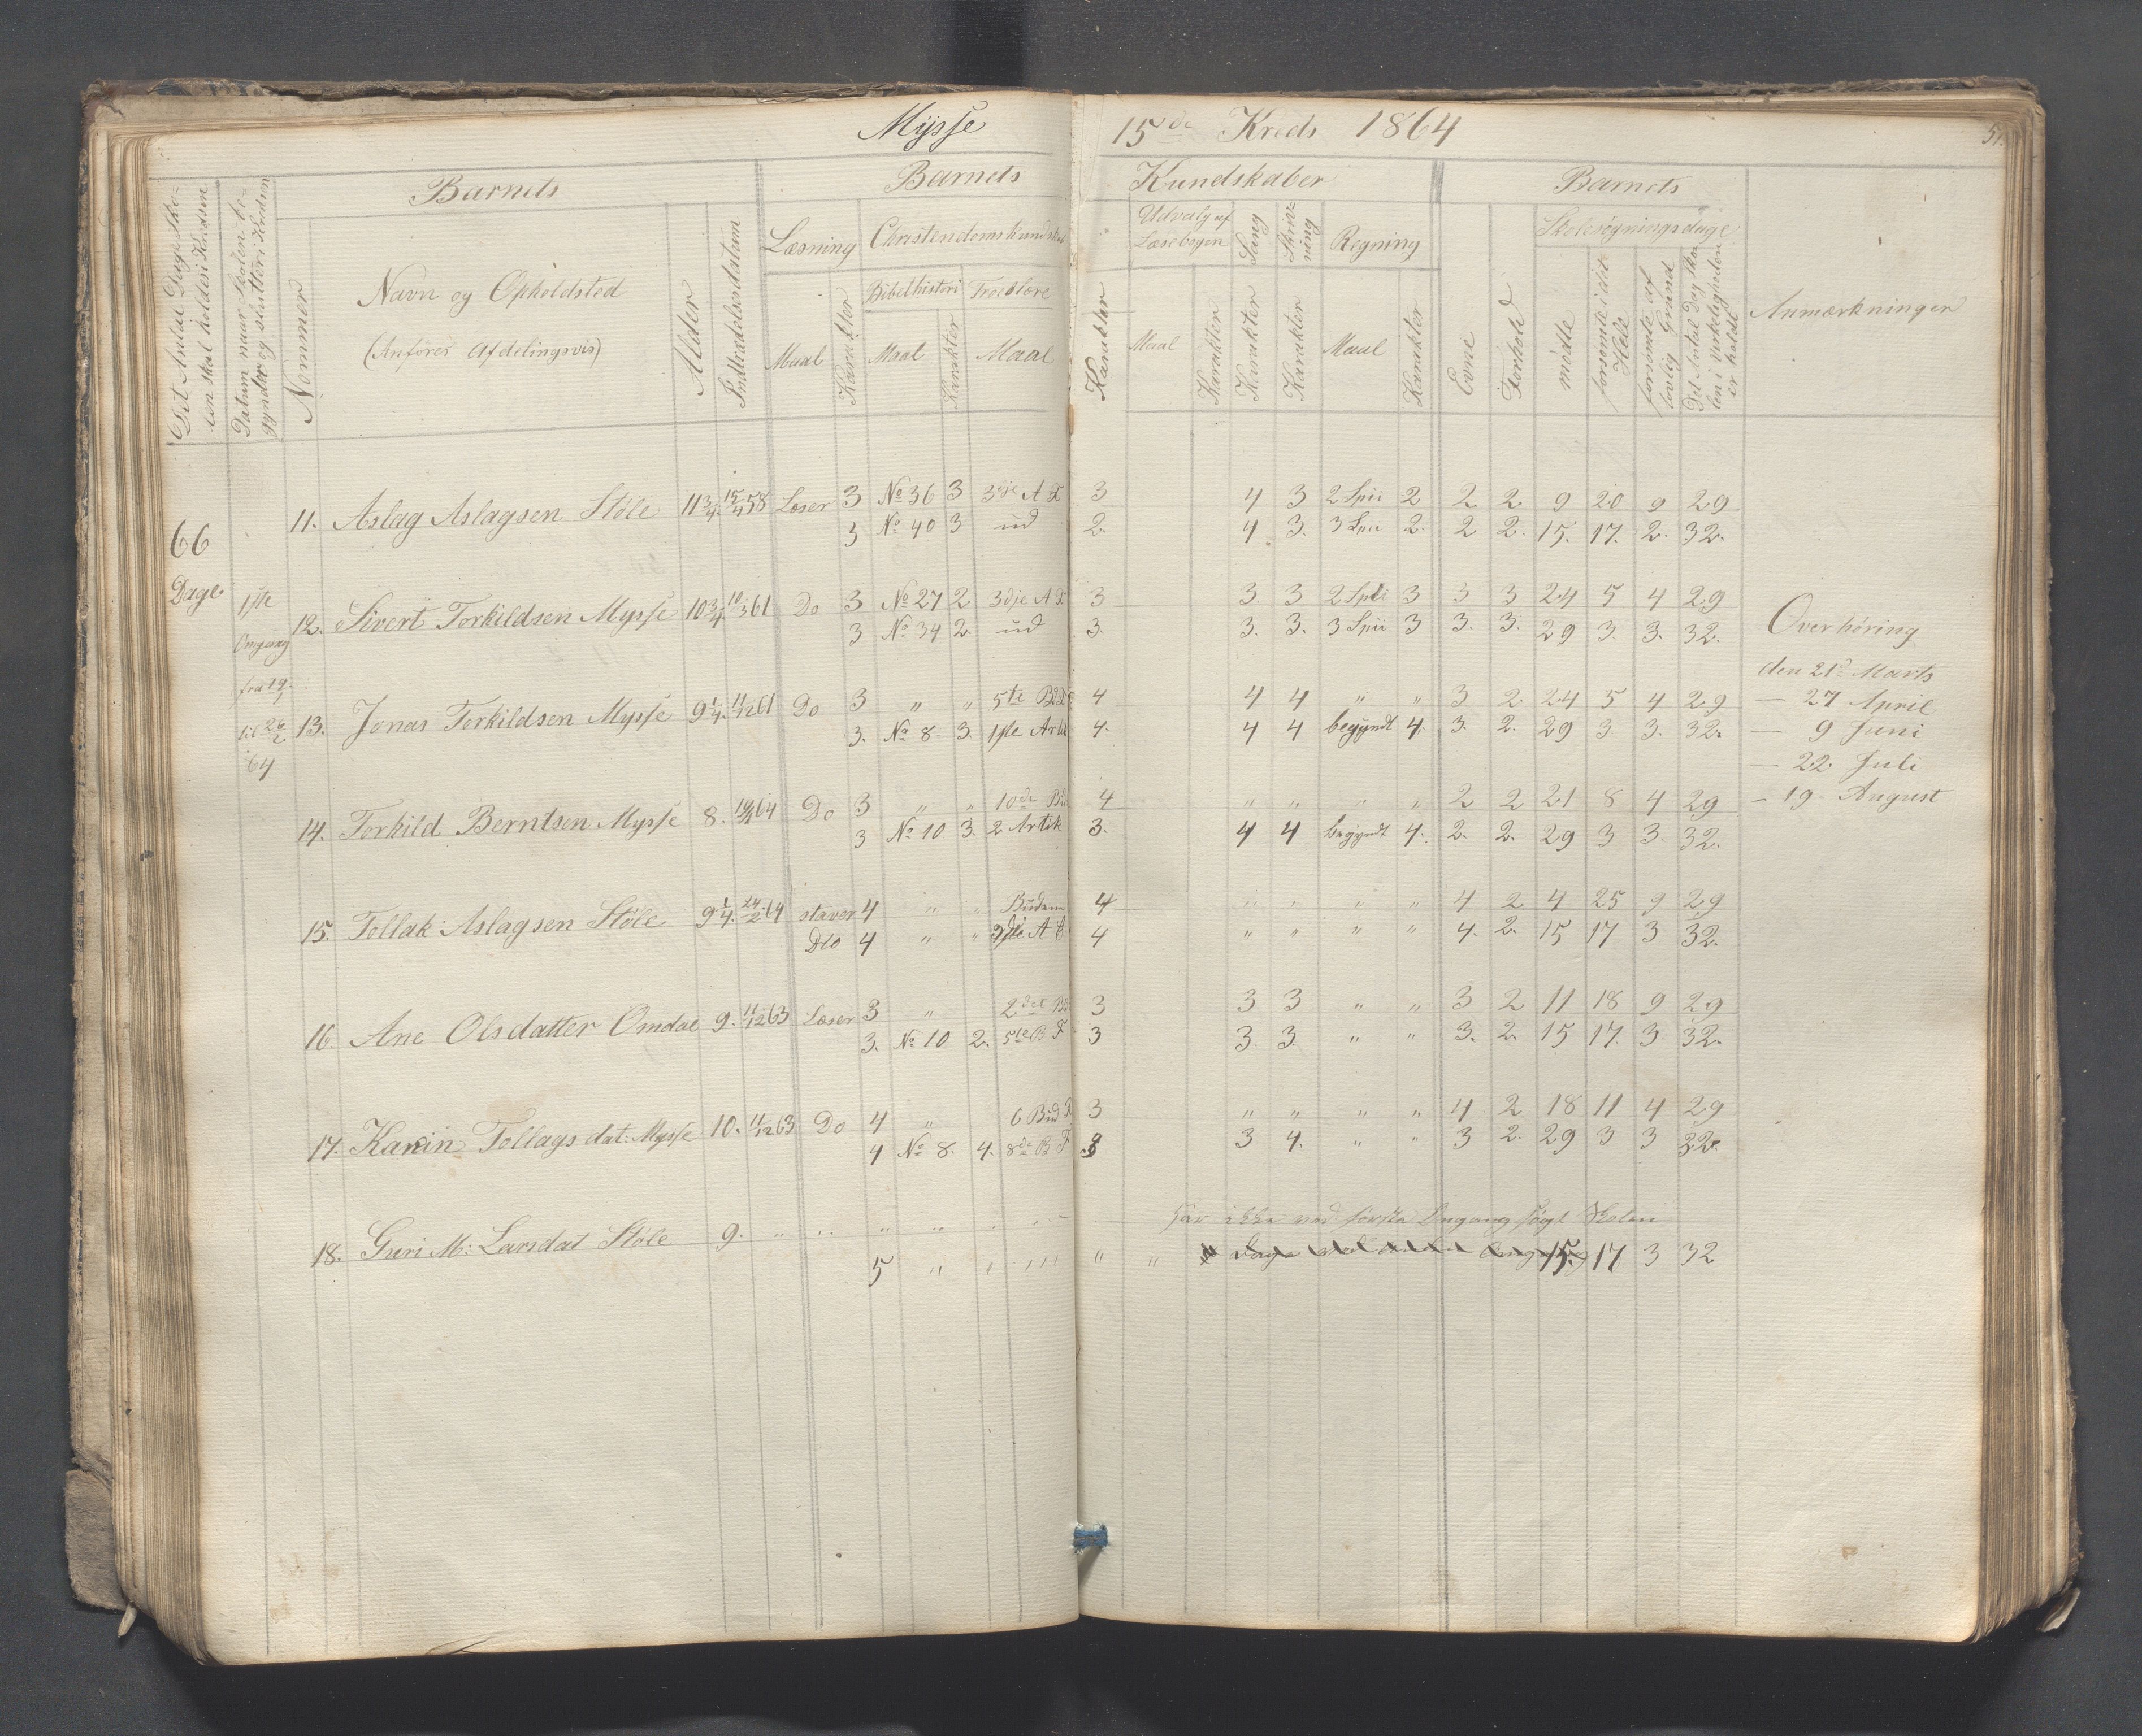 Mysse 15de Kreds 1864
Barnets Barnets Kundskaber Barnets
Det Antal Dage Skolen skal holdes i Kredsen
Datum naar Skolen begynder og slutter i Kredsen
Nommer
Navn og Opholdsted
(Anføres Afdelingsvis)
Alder
Indtrædelsesdatum
Læsning Christendomskundskab
Maal Karakter
Bibelhistori Troeslære
Maal Karakter Maal Karakter
Udvalg af Læsebogen
Maal Karakter
Sang Karakter
Skrivning Karakter
Regning
Maal Karakter
Evne
Forhold
Skolesøgningsdage
mødte
forsømte i det Hele
forsømte af lovlig Grund
Det Antal Dag Skolen i virkeligheden er holdt
Anmærkninger
66 Dage
1ste Omgang fra 19/1 til 26/2 64
11. Aslag Aslagsen Støle 11 3/4 15/4 58 Læser 3 No 36 3 3dje A F 3 4 3 2 Spii 2 2 2 9 20 9 29
3 No 40 3 ud 2. 4 3. 3 Spii 2. 2 2. 15. 17. 2. 32.
12. Sivert Torkildsen Mysse 10 3/4 10/3 61 Do 3 No 27 2 3dje A F 3 3 3 2 Spii 3 3 3 24 5 4 29
3 No 34 2. ud 3. 3. 3. 3 Spii 3 3. 3. 29 3. 3. 32.
13. Jonas Torkildsen Mysse 9 1/4 11/12 61 Do 3 " " 5te 4 4 4 " " 3 2 24 5 4 29
3. No 8. 3. 1ste Artik 4. 4 4 begyndt 4. 3. 2. 29 3. 3. 32.
14. Torkild Berntsen Mysse 8. 64 Do 3 " " 10de Bud 4 " " " " 2 2 21 8 4 29
3 No 10 3. 2 Artik 3. 4 4 begyndt 4. 2. 2. 29 3 3. 32.
15. Tollak Aslagsen Støle 9 1/4 24/2 64 staver 4 " " Budene 4 " " " " 4 2 4 25 9 29
Dto 4 " " A 4 " " " " 4. 2. 15 17 3 32.
16. Ane Olsdatter Omdal 9. 11/12 63 Læser 3 " 2det 3 3 3 " " 3 2 11 18 9 29
3. No 10 2. 5te B F 3 3. 3. " " 3. 2. 15 17. 3 32.
17. Karin Tollags dat: Mysse 10. 11/12 63 Do 4 " 6 Bud F 3 " " " " 4 2 18 11 4 29
4 No 8. 4. 8de B F 3 3 4. " " 3 2. 29 3 3 32.
18. Guri M: Larsdat Støle 9. " " " " har ikke ved første Omgang søgt Skolen
5 " " " " " 15. 17 3 32
Overhøring
den 21de Marts
— 27 April
— 9 Juni
— 22 Juli
— 19 August